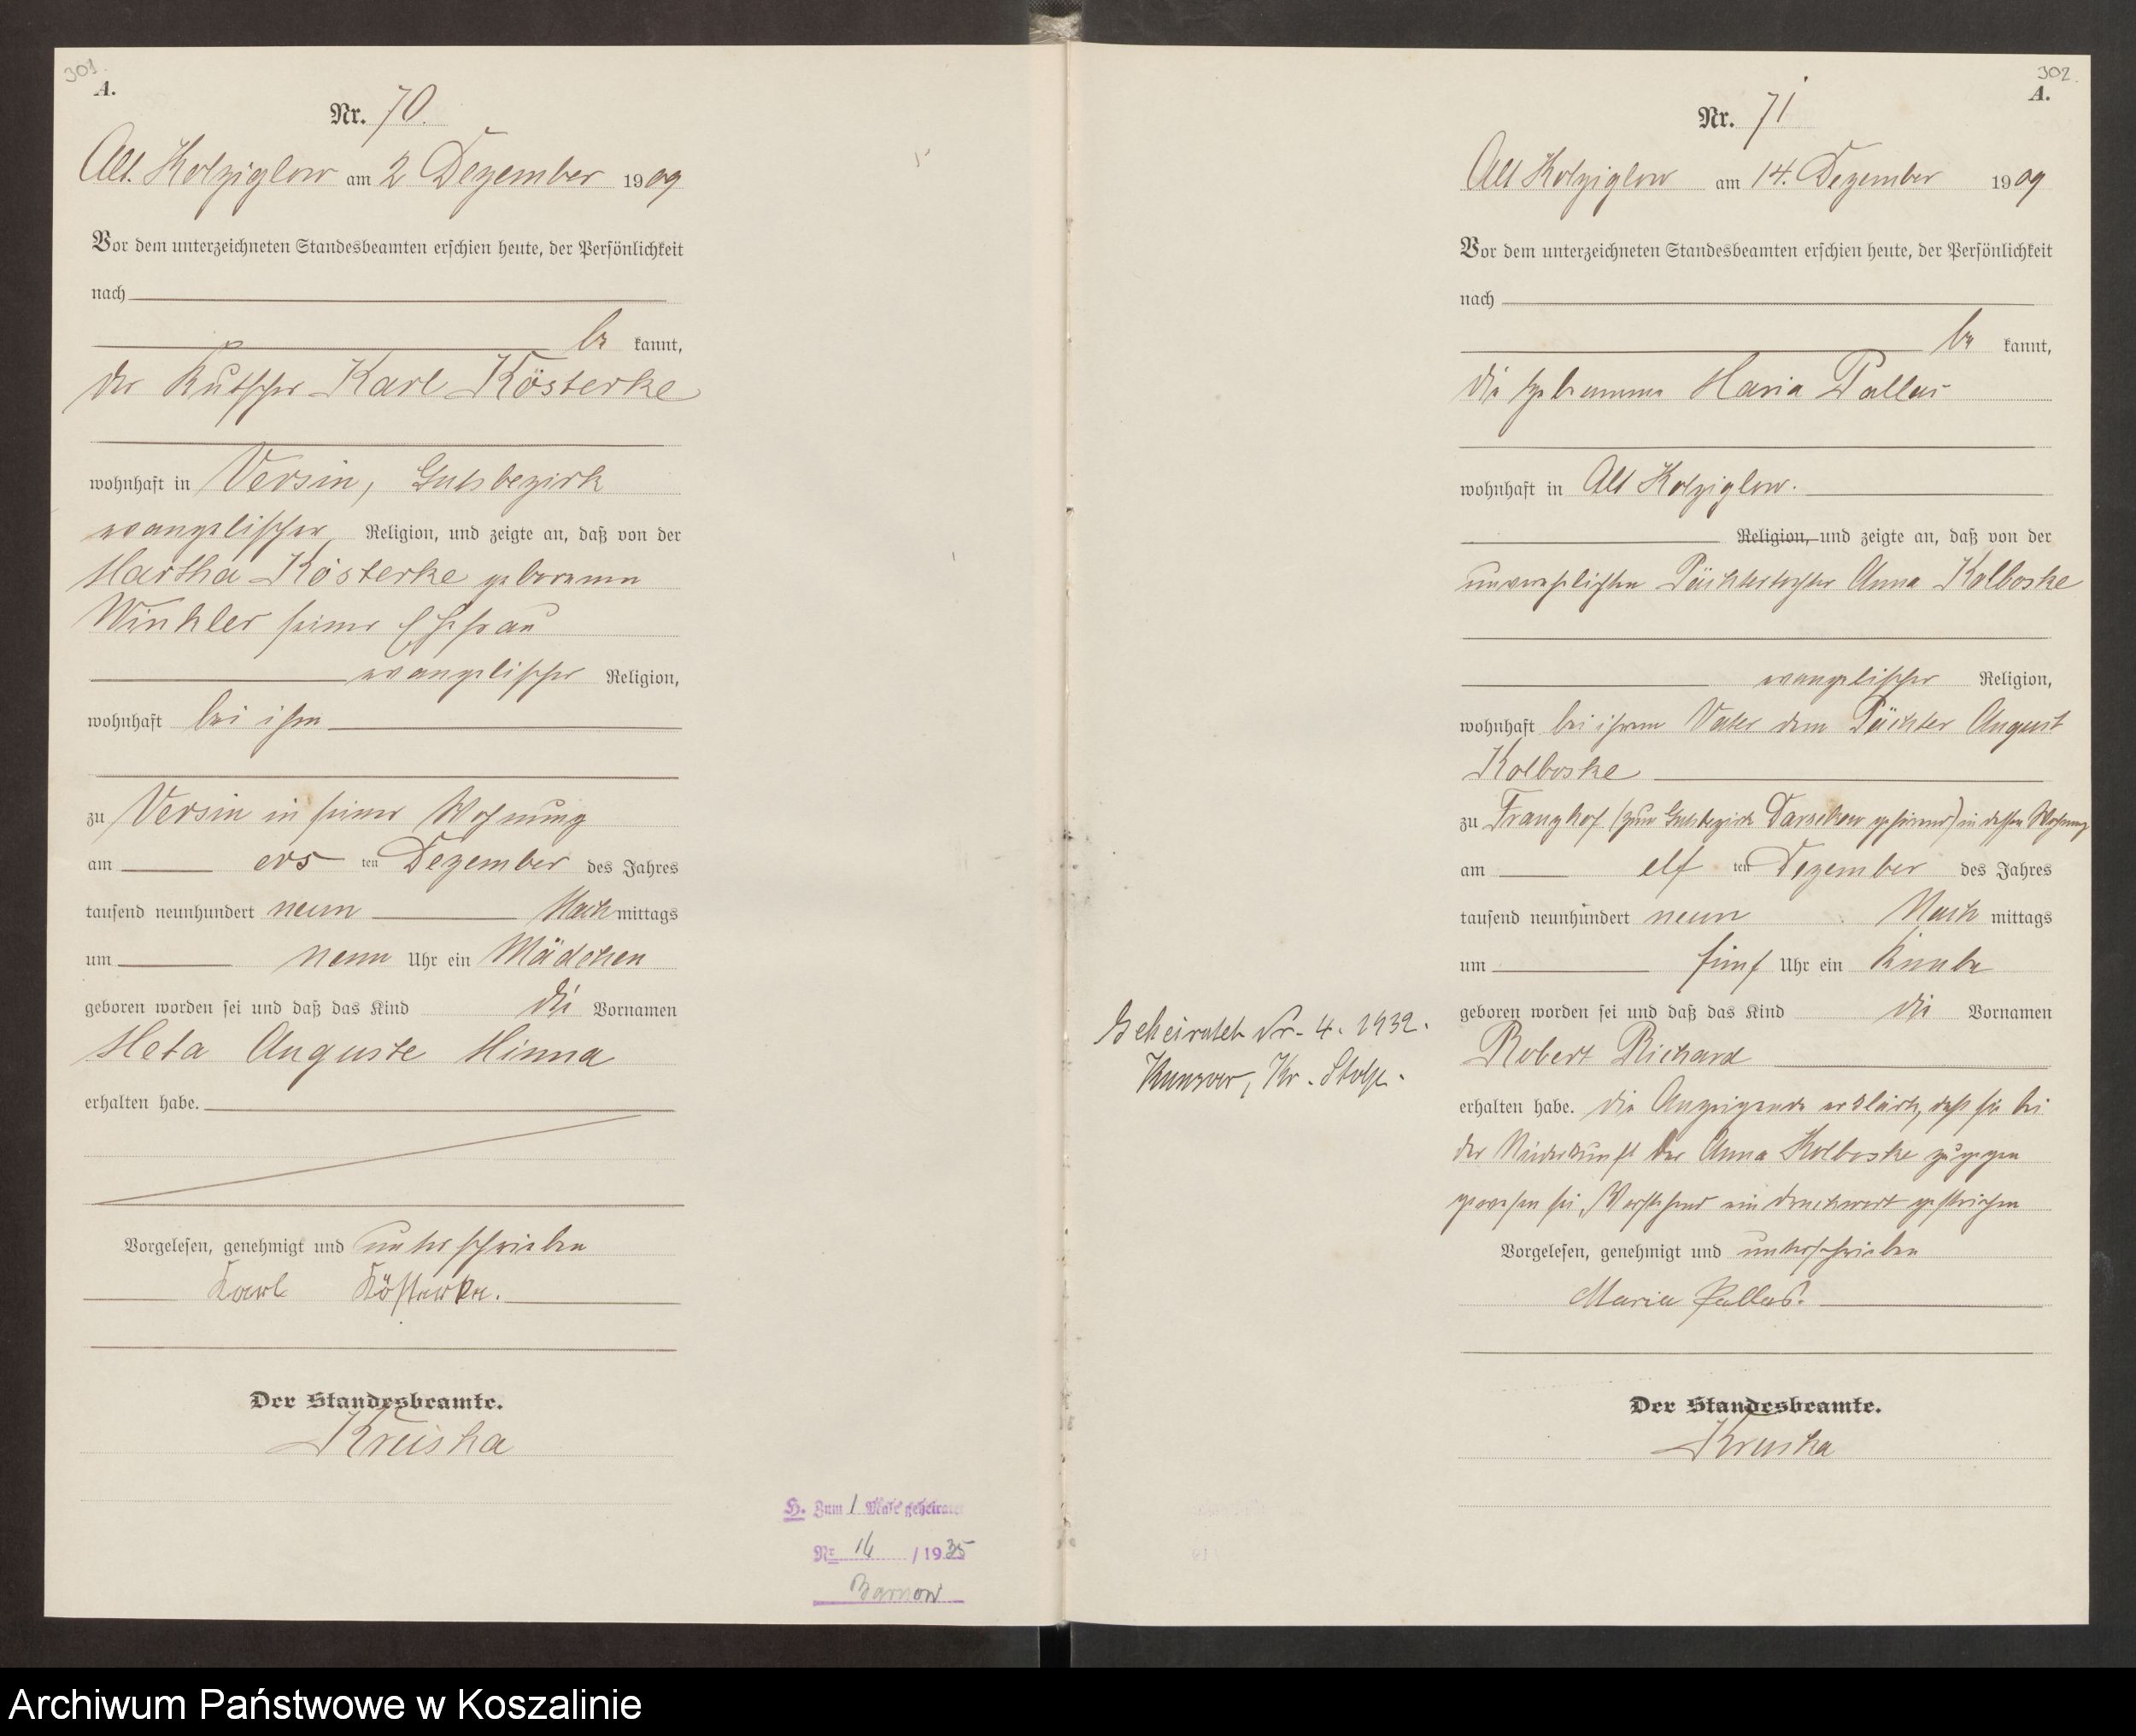 301.
A.
Nr. 70.
Alt. Kolziglow am 2 Dezember 1909
Vor dem unterzeichneten Standesbeamten erschien heute, der Persönlichkeit
nach
be kannt,
der Kutscher Karl Kösterke
wohnhaft in Versin, Gutsbezirk
evangelischer Religion, und zeigte an, daß von der
Martha Kösterke geborenen
Winkler seiner Ehefrau
evangelischer Religion,
wohnhaft bei ihm
zu Versin in seiner Wohnung
am ers ten Dezember des Jahres
tausend neunhundert neun Nach mittags
um neun Uhr ein Mädchen
geboren worden sei und daß das Kind die Vornamen
Meta Auguste Minna
erhalten habe.
Vorgelesen, genehmigt und unterschrieben
Karl Kösterke.
Der Standesbeamte.
H. Zum 1 Male geheiratet
Nr. 14 / 1935
Barnow
302.
A.
Nr. 71
Alt Kolziglow am 14. Dezember 1909
Vor dem unterzeichneten Standesbeamten erschien heute, der Persönlichkeit
nach
be kannt,
die Hebamme Maria Pallas
wohnhaft in Alt Kolziglow.
Religion, und zeigte an, daß von der
unverehelichten Pächtertochter Anna Kolboske
evangelischer Religion,
wohnhaft bei ihrem Vater dem Pächter August
Kolboske
zu Franzhof (zum Gutsbezirk Darsekow gehörend) in dessen Wohnung
am elf ten Dezember des Jahres
tausend neunhundert neun Nach mittags
um fünf Uhr ein Knabe
geboren worden sei und daß das Kind die Vornamen
Geheiratet Nr. 4. 1932.
Kr. Stolp.
Robert Richard
erhalten habe. Die Anzeigende erklärte, daß sie bei
der Niederkunft der Anna Kolboske zugegen
gewesen sei. Vorstehend ein Druckwort gestrichen
Vorgelesen, genehmigt und unterschrieben
Maria Pallas.
Der Standesbeamte.
Archiwum Państwowe w Koszalinie